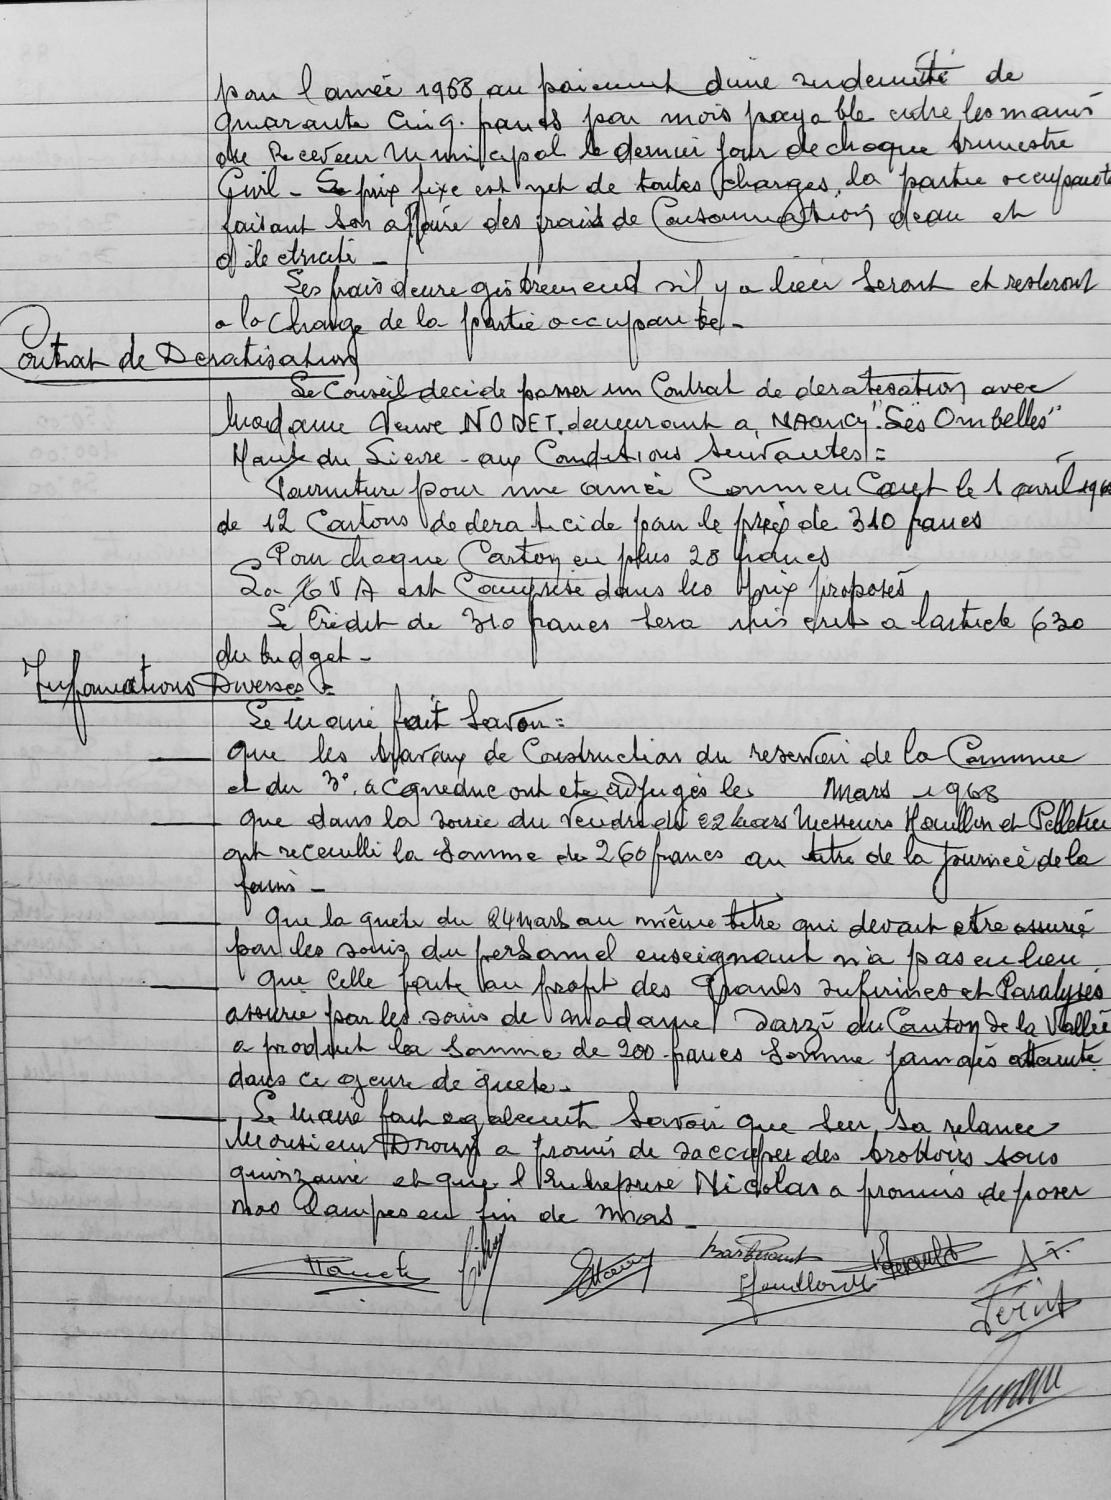 pour l'année 1968 au paiement d'une indemnité de
quarante cinq. francs par mois payable entre les mains
du Receveur Municipal le dernier jour de chaque trimestre
Civil - Le prix fixé est net de toutes charges, la partie occupante
faisant son affaire des frais de Consommation d'eau et
d'électricité -
Les frais d'enregistrement s'il y a lieu seront et resteront
a la Charge de la partie occupante -
Contrat de Dératisation
Le Conseil decide passer un Contrat de dératisation avec
Madame Veuve NODET. demeurant a, NANCY "Les Ombelles"
aux Conditions suivantes :
Fourniture pour une année Commencant le 1 avril 196
de 12 Cartons de deraticide pour le prix de 310 francs
Pour chaque Carton en plus 28 francs
La T V A est Comprise dans les prix proposés
Le Crédit de 310 francs sera inscrit a l'article 630
du budget -
Informations Diverses :
Le Maire fait savoir :
que les travaux de Construction du reservoir de la Commune
et du 3e. acqueduc ont été adjugés le Mars 1968
que dans la soirée du Vendredi 22 Mars Messieurs Houillon et Pelletier
ont receuilli la somme de 260 francs au titre de la Journée de la
faim -
Que la quete du 24 mars au même titre qui devait etre assurée
par les soins du personnel enseignant n'a pas eu lieu.
que celle faite au profit des Grands infirmes et Paralysés
assurée par les soins de Madame du Canton de la Vallée
a produit la somme de 200 francs somme jamais atteinte
dans ce genre de quete -
Le Maire fait egalement savoir que sur sa relance
Monsieur Drouin a promis de s'accuper des trottoirs sous
quinzaine et que l'Entreprise Nicolas a promis de poser
nos Lampes en fin de Mars -